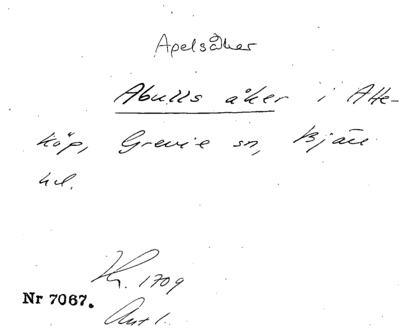 Apelsåker
Abulls åker i Atte-
köp, Grevie sn, Bjäre
hd.
Kr. 1709
Nr 7067.
Ant 1.